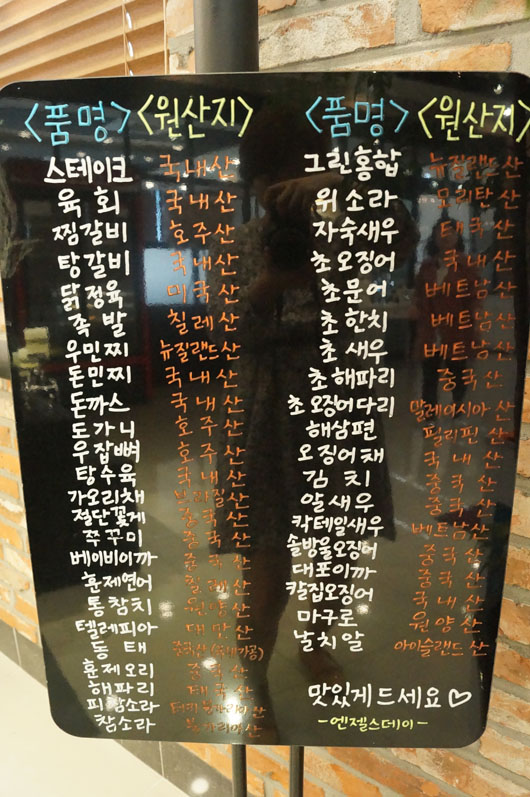 <품명> <원산지>
스테이크 국내산
육회 국내산
찜갈비 호주산
탕갈비 국내산
닭정육 미국산
족발 칠레산
우민찌 뉴질랜드산
돈민찌 국내산
돈까스 국내산
도가니 호주산
우잡뼈 호주산
탕수육 국내산
가오리채 브라질산
절단꽃게 중국산
쭈꾸미 중국산
베이비이까 중국산
훈제연어 칠레산
통참치 원양산
텔레피아 대만산
동태 중국산
훈제오리 중국산
해파리 태국산
피참소라
참소라 불가리아산
<품명> <원산지>
그린홍합 뉴질랜드산
위소라 모리탄산
자숙새우 태국산
초오징어 국내산
초문어 베트남산
초한치 베트남산
초새우 베트남산
초해파리 중국산
초오징어다리 말레이시아산
해삼편 필리핀산
오징어채 국내산
김치 중국산
알새우 중국산
칵테일새우 베트남산
솔방울오징어 중국산
대포이까 중국산
칼집오징어 국내산
마구로 원양산
날치알 아이슬랜드산
맛있게드세요♡
-엔젤스데이-